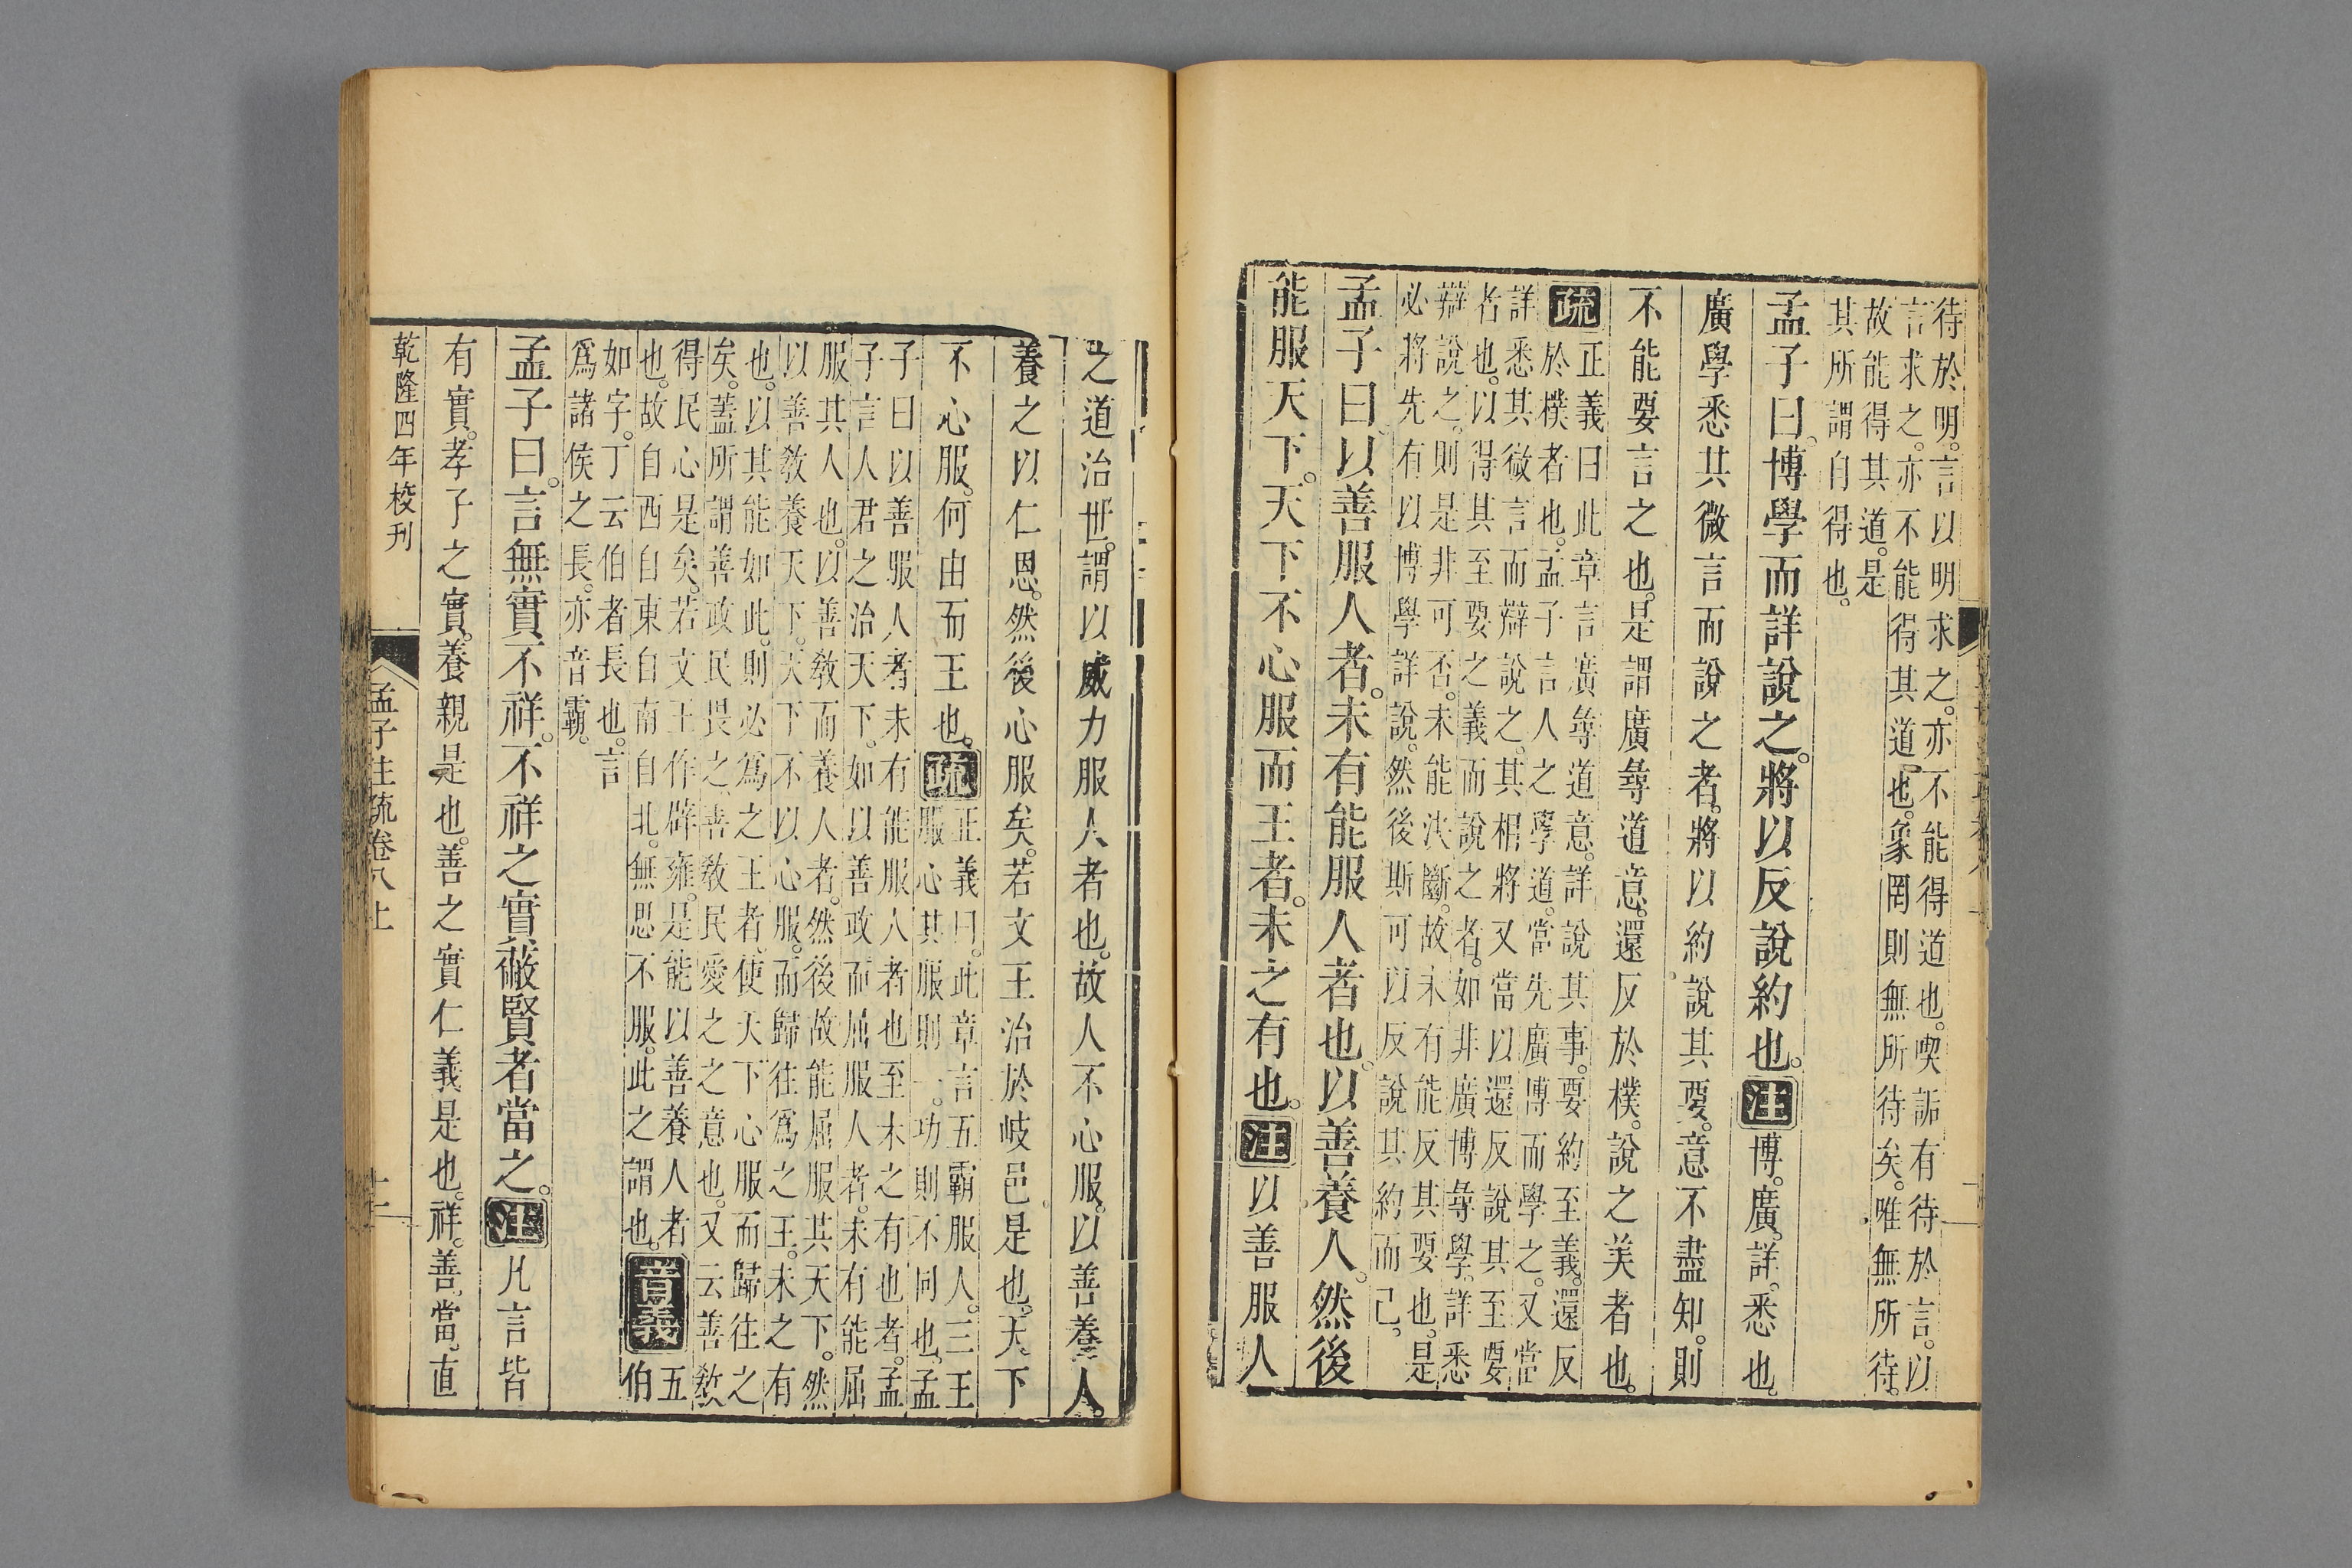 待於明。言以明求之。亦不能得道也。喫詬有待於言。以
言求之。亦不能得其道也。象罔則無所待矣。唯無所待。
故能得其道。是
其所謂自得也。
孟子曰。博學而詳說之。將以反說約也。注博。廣。詳。悉也。
廣學悉其微言而說之者。將以約說其要。意不盡知。則
不能要言之也。是謂廣尋道意。還反於樸。說之美者也。
疏正義曰此章言廣尋道意。詳說其事。要約至義。還反
於樸者也。孟子言人之學道。當先廣博而學之。又當
詳悉其微言而辯說之。其相將又當以還反說其至要
者也。以得其至要之義而說之者。如非廣博尋學。詳悉
辯說之。則是非可否。未能決斷。故未有能反其要也。是
必將先有以博學詳說。然後斯可以反說其約而已。
孟子曰。以善服人者。未有能服人者也。以善養人。然後
能服天下。天下不心服而王者。未之有也。注以善服人
之道治世。謂以威力服人者也。故人不心服。以善養人。
養之以仁恩。然後心服矣。若文王治於岐邑是也。天下
不心服。何由而王也。疏正義曰。此章言五霸服人。三王
服心其服則一。功則不同也。孟
子曰以善服人者未有能服人者也至未之有也者。孟
子言人君之治天下。如以善政而屈服人者。未有能屈
服其人也。以善教而養人者。然後故能屈服其天下。然
以善教養天下。天下不以心服。而歸往爲之王。未之有
也。以其能如此。則必爲之王者。使天下心服而歸往之
矣。蓋所謂善政民畏之善教民愛之之意也。又云善教
得民心是矣。若文王作辟雍。是能以善養人者
也。故自西自東自南自北。無思不服。此之謂也。音義五伯
如字。丁云伯者長也。言
爲諸侯之長。亦音霸。
孟子曰。言無實不祥。不祥之實蔽賢者當之。注凡言皆
有實。孝子之實。養親是也。善之實仁義是也。祥。善。當。直
乾隆四年校刊
孟子注疏卷八上